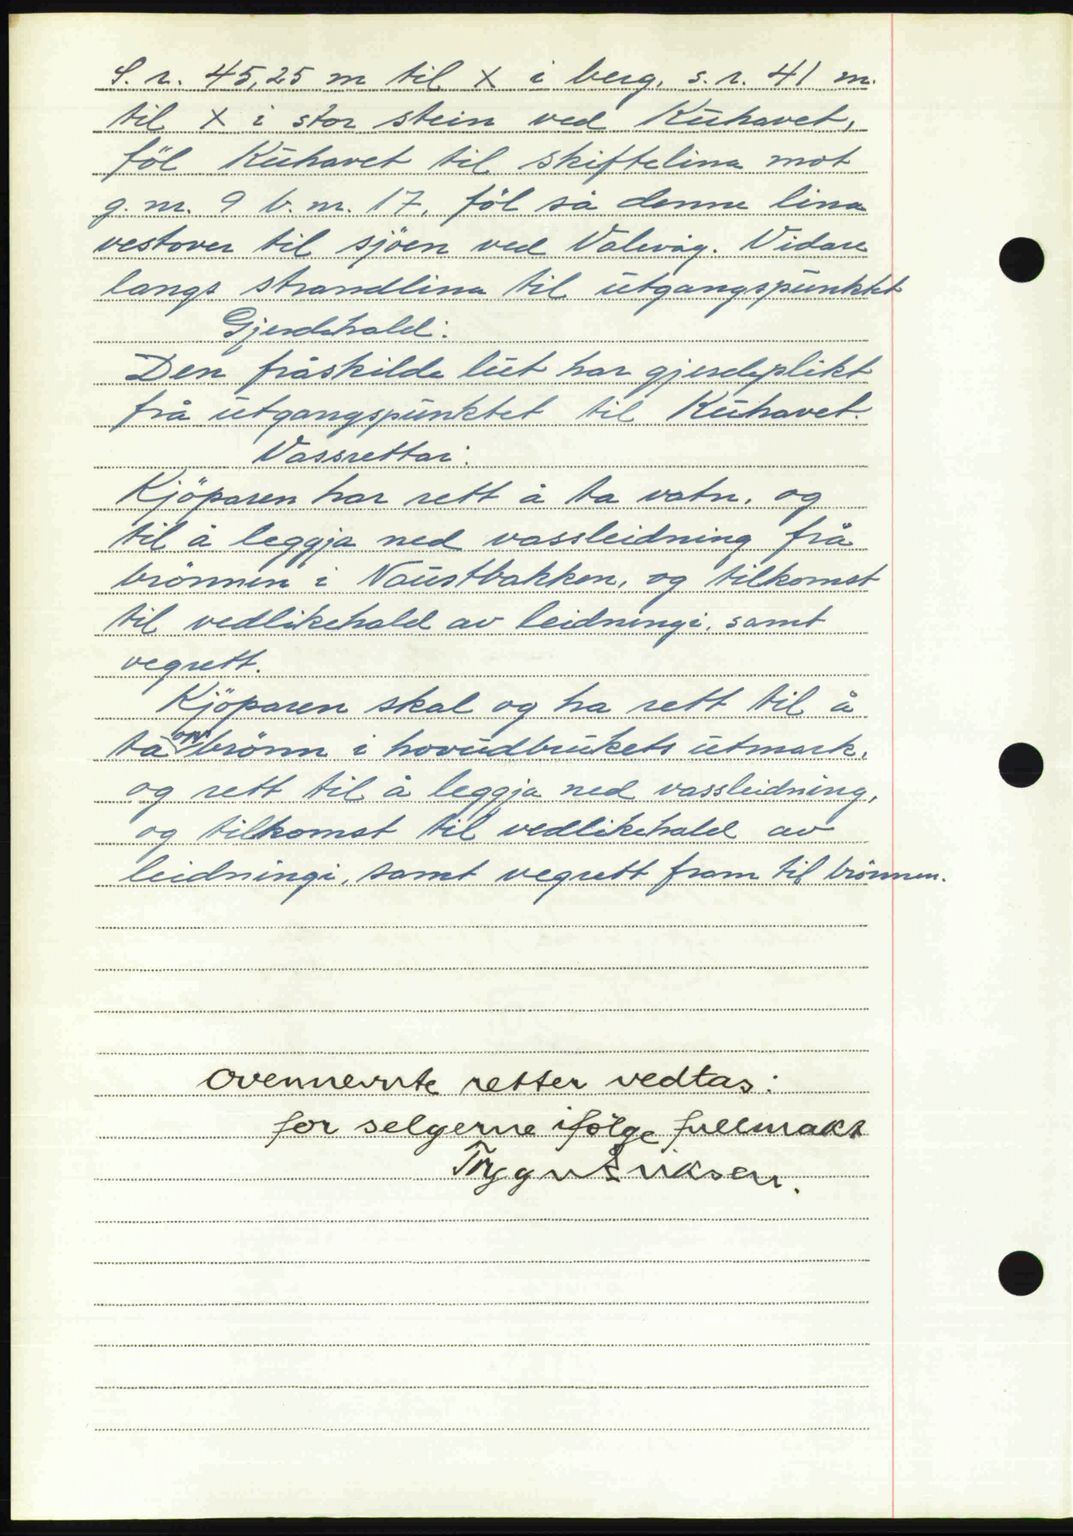 S. r. 45,25 m til x i berg, s. r. 41 m.
til x i stor stein ved Kuhavet,
föl Kuhavet til skiftelina mot
g. nr. 9 b. nr. 17, föl så denne lina
vestover til sjöen ved Valevåg. Vidare
langs strandlina til utgangspunktet
Gjerdehald:
Den fråskilde lut har gjerdeplikt
frå utgangspunktet til Kuhavet.
Vassrettar:
Kjöparen har rett å ta vatn, og
til å leggja ned vassleidning frå
brönnen i Naustbakken, og tilkomst
til vedlikehald av leidningi, samt
vegrett.
Kjöparen skal og ha rett til å
ta opp brönn i hovudbrukets utmark,
og rett til å leggja ned vassleidning,
og tilkomst til vedlikehald av
leidningi, samt vegrett fram til brönnen.
Ovennevnte retter vedtas:
for selgerne ifölge fullmakt
Trygve Eriksen.